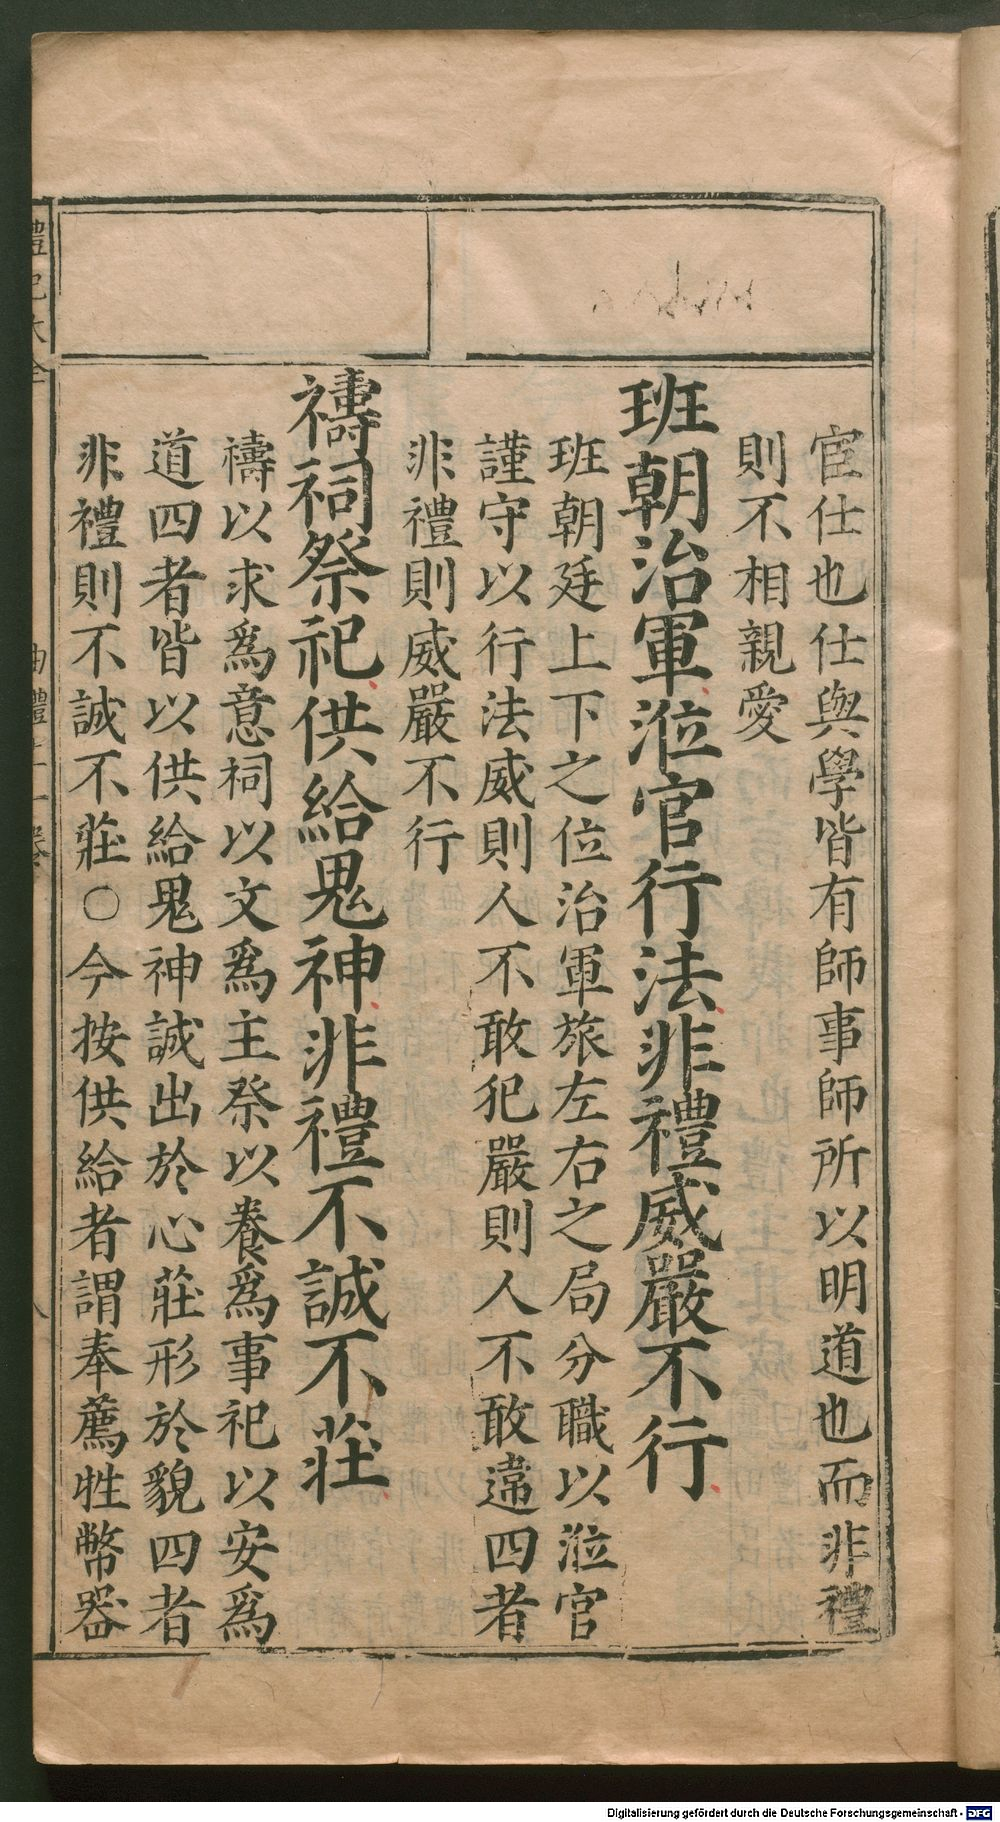 宦仕也仕與學皆有師事師所以明道也而非禮
則不相親愛
班朝治軍涖官行法非禮威嚴不行
班朝廷上下之位治軍旅左右之局分職以涖官
謹守以行法威則人不敢犯嚴則人不敢違四者
非禮則威嚴不行
禱祠祭祀供給鬼神非禮不誠不莊
禱以求爲意祠以文爲主祭以養爲事祀以安爲
道四者皆以供給鬼神誠出於心莊形於貌四者
非禮則不誠不莊○今按供給者謂奉薦牲幣器
Digitalisierung gefördert durch die Deutsche Forschungsgemeinschaft - DFG